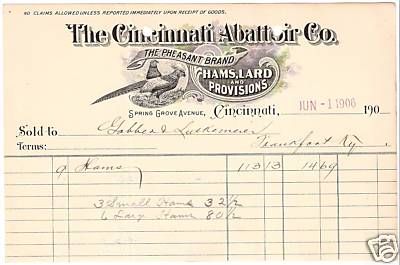 NO CLAIMS ALLOWED UNLESS REPORTED IMMEDIATELY UPON RECEIPT OF GOODS.
The Cincinnati Abattoir Co.
THE PHEASANT BRAND
HAMS, LARD
AND
PROVISIONS.
SPRING GROVE AVENUE, Cincinnati, JUN -1 1906 190
Sold to
Terms: Frankfort Ky
9 Hams 113 13 14 69
3 Small Hams 32 1/2
6 Larg Hams 80 1/2